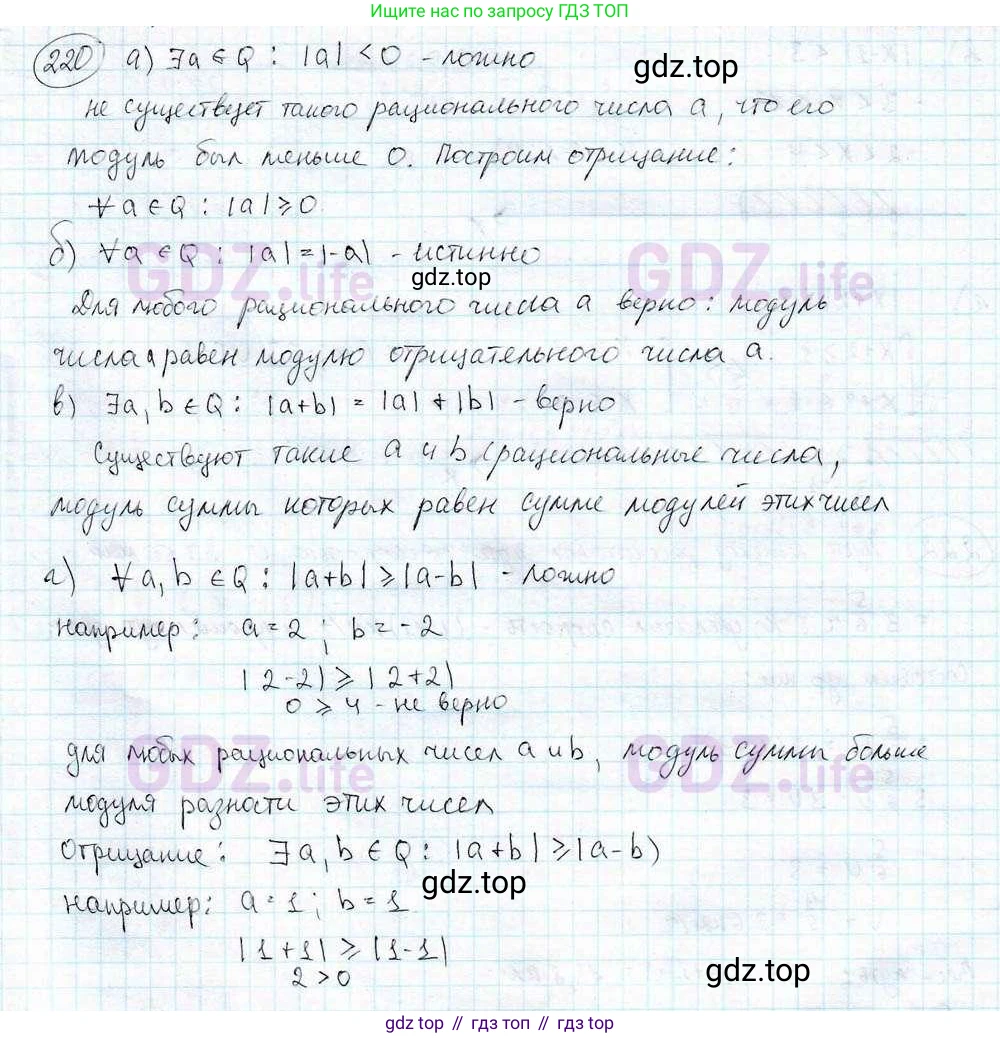 Ищите решение по запросу ГДЗ ТОП
220 а) ∃a ∈ Q : |a| < 0 - ложно
gdz.top
не существует такого рационального числа a, что его
модуль был меньше 0. Построим отрицание:
∀a ∈ Q : |a| ⩾ 0
б) ∀a ∈ Q : |a| = |-a| - истинно
GDZ.life GDZ.life
gdz.top
Для любого рационального числа a верно: модуль
числа a равен модулю отрицательного числа a.
в) ∃a, b ∈ Q : |a+b| = |a| + |b| - верно
Существуют такие a и b (рациональные числа,
модуль суммы которых равен сумме модулей этих чисел
г) ∀a, b ∈ Q : |a+b| ⩾ |a-b| - ложно
например: a = 2 ; b = -2
|2-2| ⩾ |2+2|
0 ⩾ 4 - не верно
для любых рациональных чисел a и b, модуль суммы больше
GDZ.life GDZ.life
модуля разности этих чисел
Отрицание: ∃a, b ∈ Q : |a+b| ⩾ |a-b|
gdz.top
например: a = 1 ; b = 1
|1+1| ⩾ |1-1|
2 > 0
gdz.top
gdz top // гдз топ // gdz top